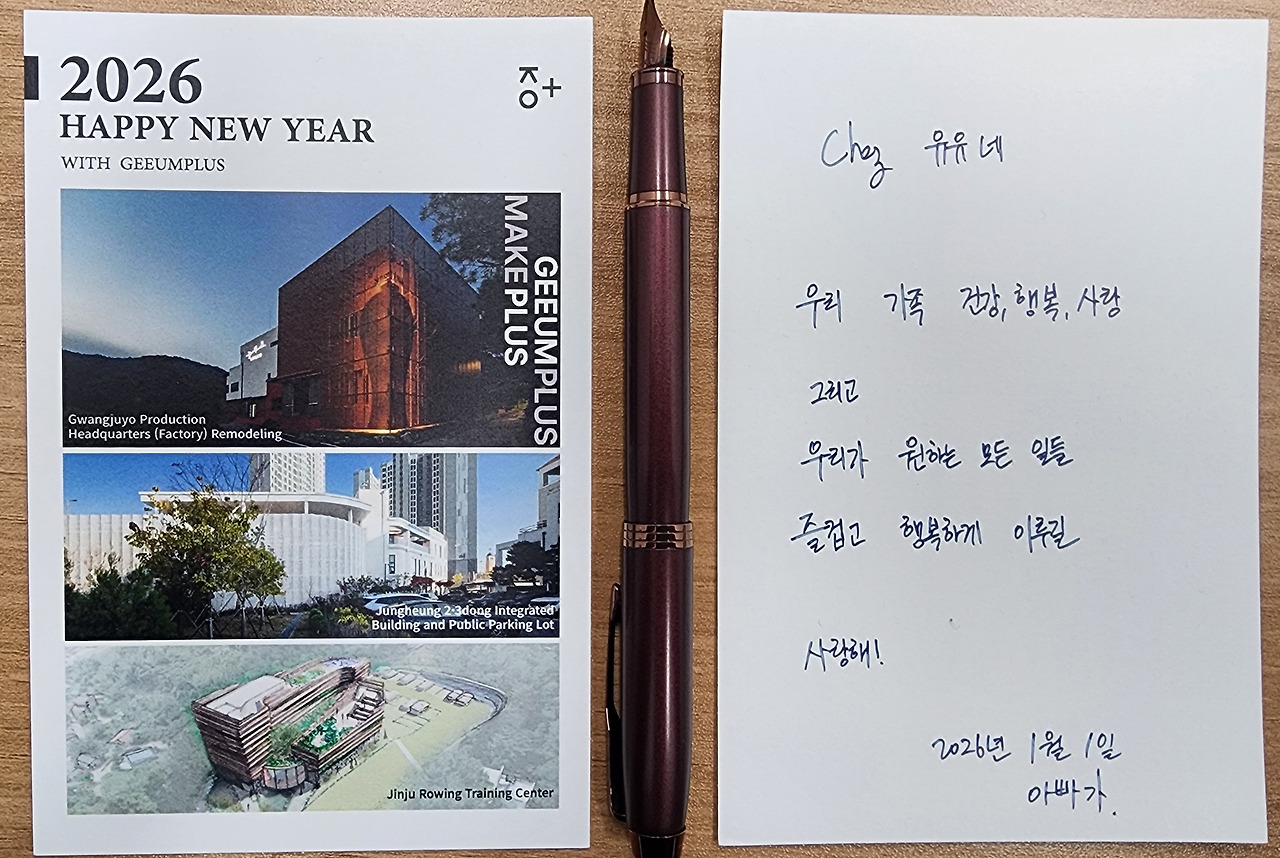 2026
HAPPY NEW YEAR
WITH GEEUMPLUS
MAKE PLUS
GEEUMPLUS
Gwangjuyo Production
Headquarters (Factory) Remodeling
Jungheung 2·3dong Integrated
Building and Public Parking Lot
Jinju Rowing Training Center
유유네
우리 가족 건강, 행복, 사랑
그리고
우리가 원하는 모든 일들
즐겁고 행복하게 이루길
사랑해!
2026년 1월 1일
아빠가.